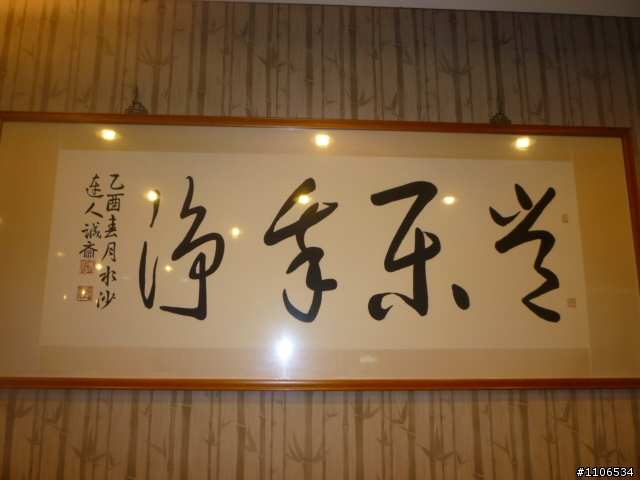 常樂我淨
乙酉春月水沙
連人誠齋
#1106534